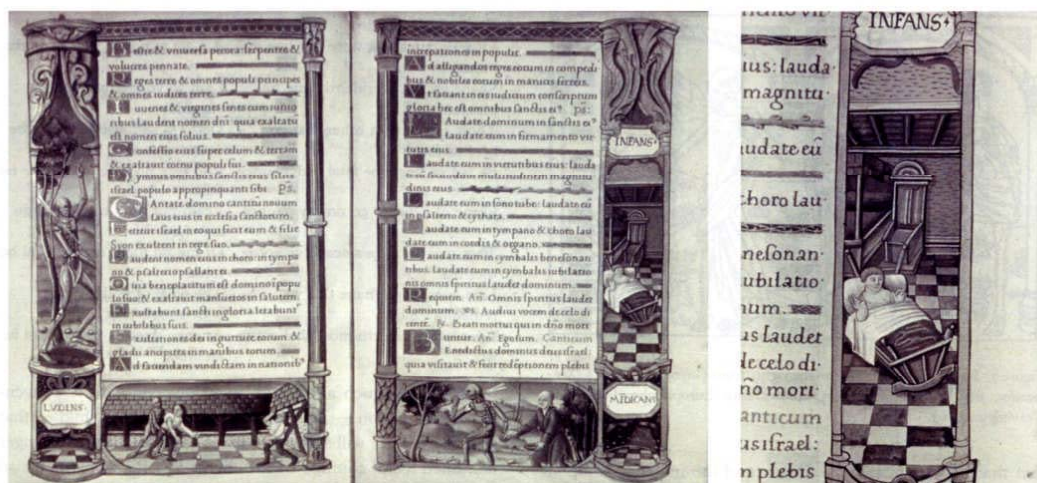 Bestie & vniuersa pecora: serpentes &
volucres pennate.
Reges terre & omnes populi principes
& omnes iudices terre.
Iuuenes & virgines senes cum iunio
ribus laudent nomen dnī quia exaltatū
est nomen eius solius.
Confessio eius super celum & terram
& exaltauit cornu populi sui.
Hymnus omnibus sanctis eius filiis
israel populo appropinquanti sibi. ps.
Cantate domino canticū nouum
laus eius in ecclesia sanctorum.
Letetur israel in eo qui fecit eum & filie
Syon exultent in rege suo.
Laudent nomen eius in choro: in tympa
no & psalterio psallant ei.
Quia beneplacitum est domino ī popu
lo suo: & exaltauit mansuetos in salutem.
Exultabunt sancti in gloria letabunt
in cubilibus suis.
Exultationes dei in gutture eorum &
gladii ancipites in manibus eorum.
Ad faciendam vindictam in nationib9
LVDENS·
increpationes in populis.
Ad alligandos reges eorum in compedi
bus & nobiles eorum in manicis ferreis.
Vt faciant in eis iudicium conscriptum
gloria hec est omnibus sanctis ei9 ps:
Laudate dominum in sanctis ei9
laudate eum in firmamento vir
tutis eius.
Laudate eum in virtutibus eius: lauda
te eum secundum multitudinem magnitu
dinis eius.
Laudate eum in sono tube: laudate eū
in psalterio & cythara.
Laudate eum in tympano & choro lau
date eum in cordis & organo.
Laudate eum in cymbalis benesonan
tibus. laudate eum in cymbalis iubilatio
nis omnis spiritus laudet dominum.
Requiem. An. Omnis spiritus laudet
dominum. Audiui vocem de celo di
centē. Beati mortui qui in dño mori
untur. An. Ego sum. Canticum
Benedictus dominus deus israel:
quia visitauit & fecit redēptionem plebis
INFANS·
MEDICANS
INFANS·
ius: lauda·
magnitu·
audate eū
choro lau·
nesonan·
ubilatio·
num.
us laudet
de celo di·
ño mori·
anticum
us israel:
n plebis